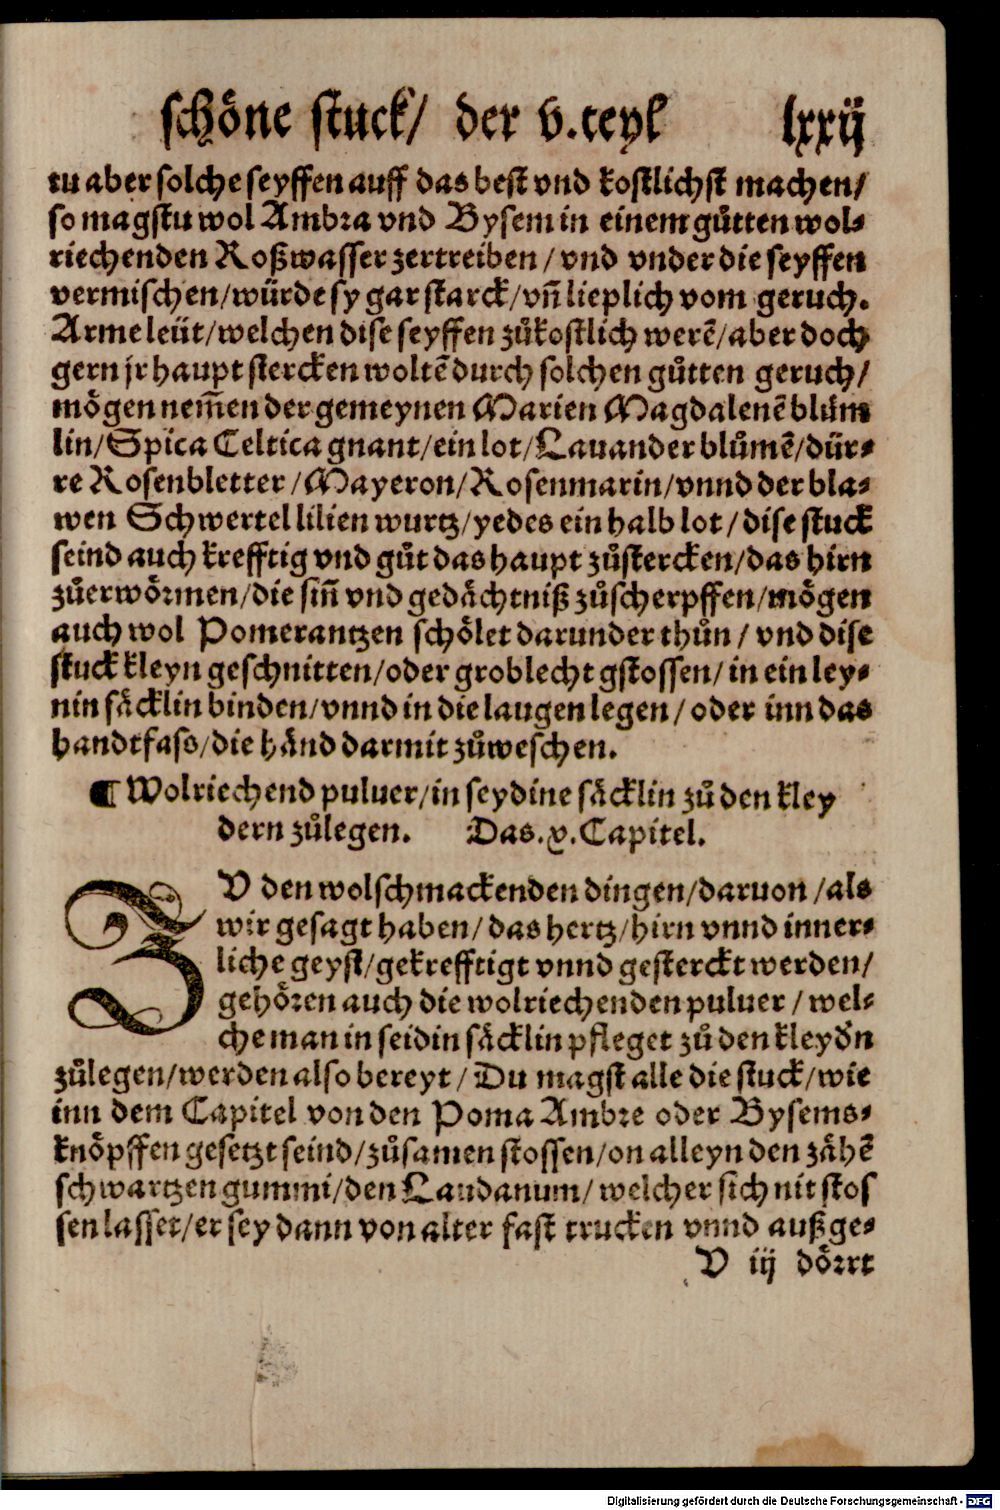 schöne stuck/ der v.teyl lxxij
tu aber solche seyffen auff das best vnd kostlichst machen/
so magstu wol Ambra vnd Bysem in einem gůtten wol-
riechenden Roßwasser zertreiben/ vnd vnder die seyffen
vermischen/würde sy gar starck/vñ lieplich vom geruch.
Arme leüt/welchen dise seyffen zůkostlich werẽ/aber doch
gern jr haupt stercken woltẽ durch solchen gůtten geruch/
mögen nem̃en der gemeynen Marien Magdalenẽ blům
lin/Spica Celtica gnant/ein lot/Lauander blůmẽ/dür-
re Rosenbletter/Mayeron/Rosenmarin/vnnd der bla-
wen Schwertel lilien wurtz/yedes ein halb lot/dise stuck
seind auch krefftig vnd gůt das haupt zůstercken/das hirn
zůerwörmen/die siñ vnd gedächtniß zůscherpffen/mögen
auch wol Pomerantzen schölet darunder thůn/ vnd dise
stuck kleyn geschnitten/oder groblecht gstossen/in ein ley-
nin säcklin binden/vnnd in die laugen legen/ oder inn das
handtfass/die händ darmit zůweschen.
¶ Wolriechend puluer/in seydine säcklin zů den kley
dern zůlegen. Das.x.Capitel.
ZV den wolschmackenden dingen/daruon/als
wir gesagt haben/ das hertz/hirn vnnd inner-
liche geyst/gekrefftigt vnnd gesterckt werden/
gehören auch die wolriechenden puluer/ wel-
che man in seidin säcklin pfleget zů den kleydn̄
zůlegen/werden also bereyt/ Du magst alle die stuck/wie
inn dem Capitel von den Poma Ambre oder Bysems-
knöpffen gesetzt seind/zůsamen stossen/on alleyn den zähẽ
schwartzen gummi/den Laudanum/ welcher sich nit stos
sen lasset/er sey dann von alter fast trucken vnnd außge-
V iij dörrt
Digitalisierung gefördert durch die Deutsche Forschungsgemeinschaft - DFG